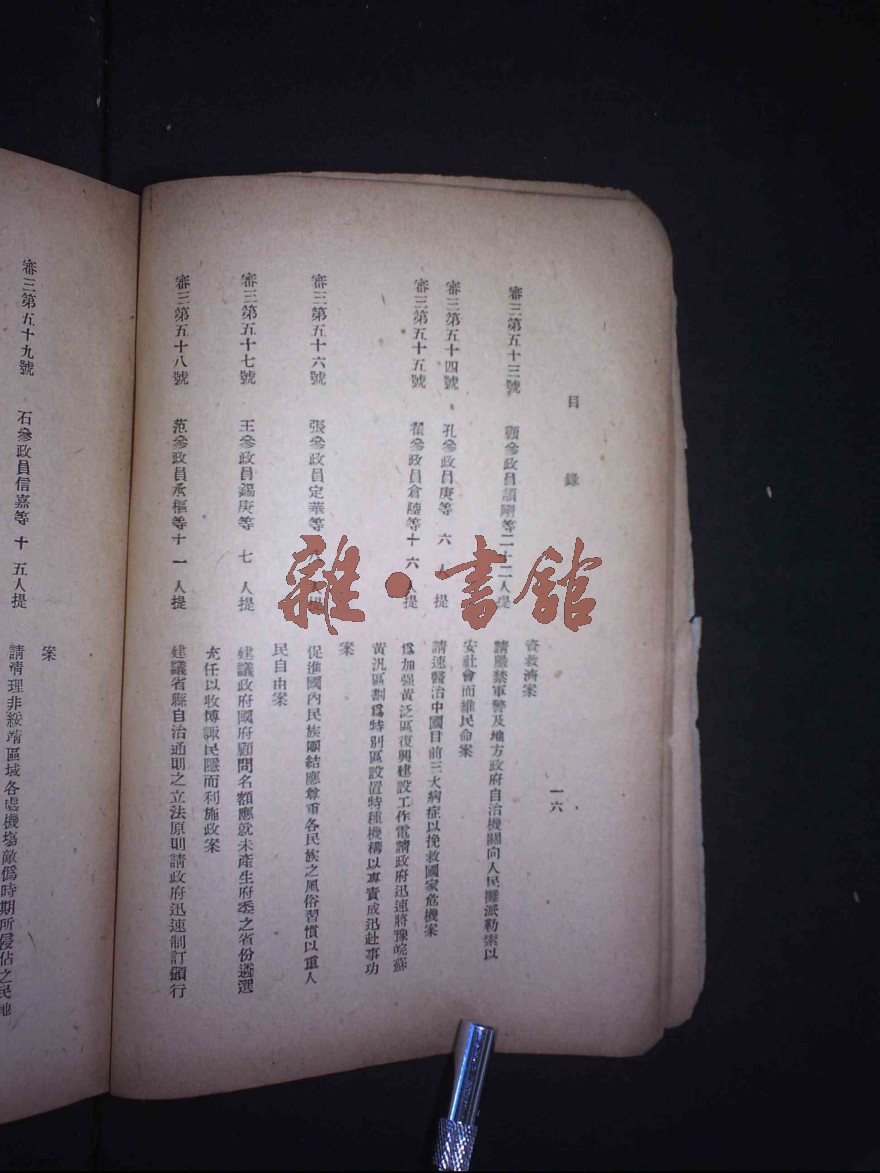 目錄
一六
資救濟案
審三第五十三號 顧參政員頡剛等二十二人提 請嚴禁軍警及地方政府自治機關向人民攤派勒索以
安社會而維民命案
審三第五十四號 孔參政員庚等六人提 請速醫治中國目前三大病症以挽救國家危機案
審三第五十五號 翟參政員倉陸等十六人提 爲加强黃泛區復興建設工作電請政府迅速將豫皖蘇
黃汎區劃爲特別區設置特種機構以專責成迅赴事功
案
審三第五十六號 張參政員定華等人提 促進國內民族團結應尊重各民族之風俗習慣以重人
民自由案
審三第五十七號 王參政員錫庚等七人提 建議政府國府顧問名額應就未產生府委之省份遴選
充任以收博諏民隱而利施政案
審三第五十八號 范參政員承樞等十一人提 建議省縣自治通則之立法原則請政府迅速制訂頒行
案
審三第五十九號 石參政員信嘉等十五人提 請清理非綏靖區域各處機塲敵僞時期所侵佔之民地
雜·書館